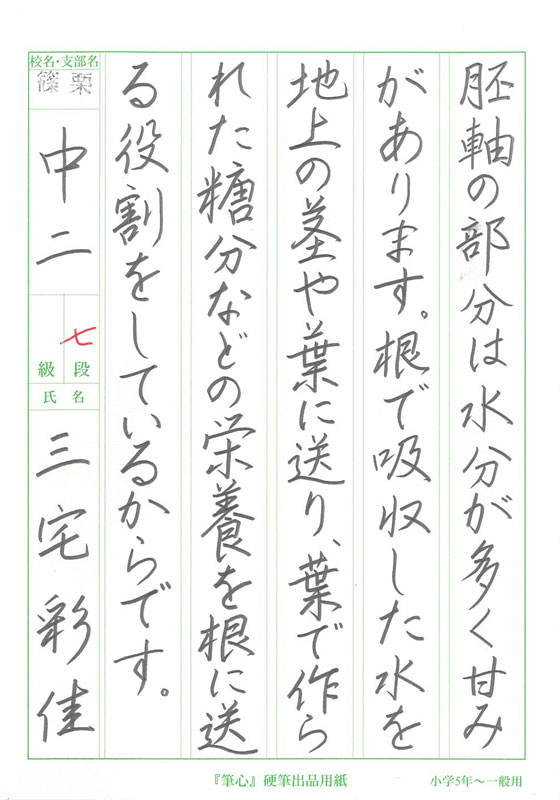 胚軸の部分は水分が多く甘み
があります。根で吸収した水を
地上の茎や葉に送り、葉で作ら
れた糖分などの栄養を根に送
る役割をしているからです。
校名・支部名
篠栗
中二
七
級 段
氏名
三宅彩佳
『筆心』硬筆出品用紙
小学5年～一般用